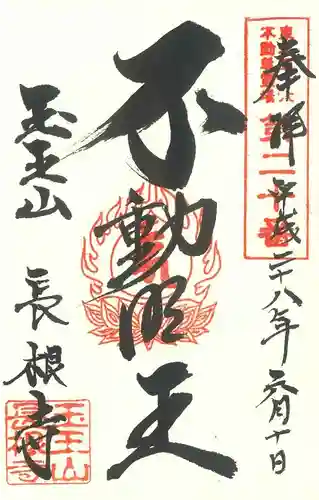 奉拝 平成二十八年六月十日
不動明王
玉王山 長根寺
玉王山
長根寺